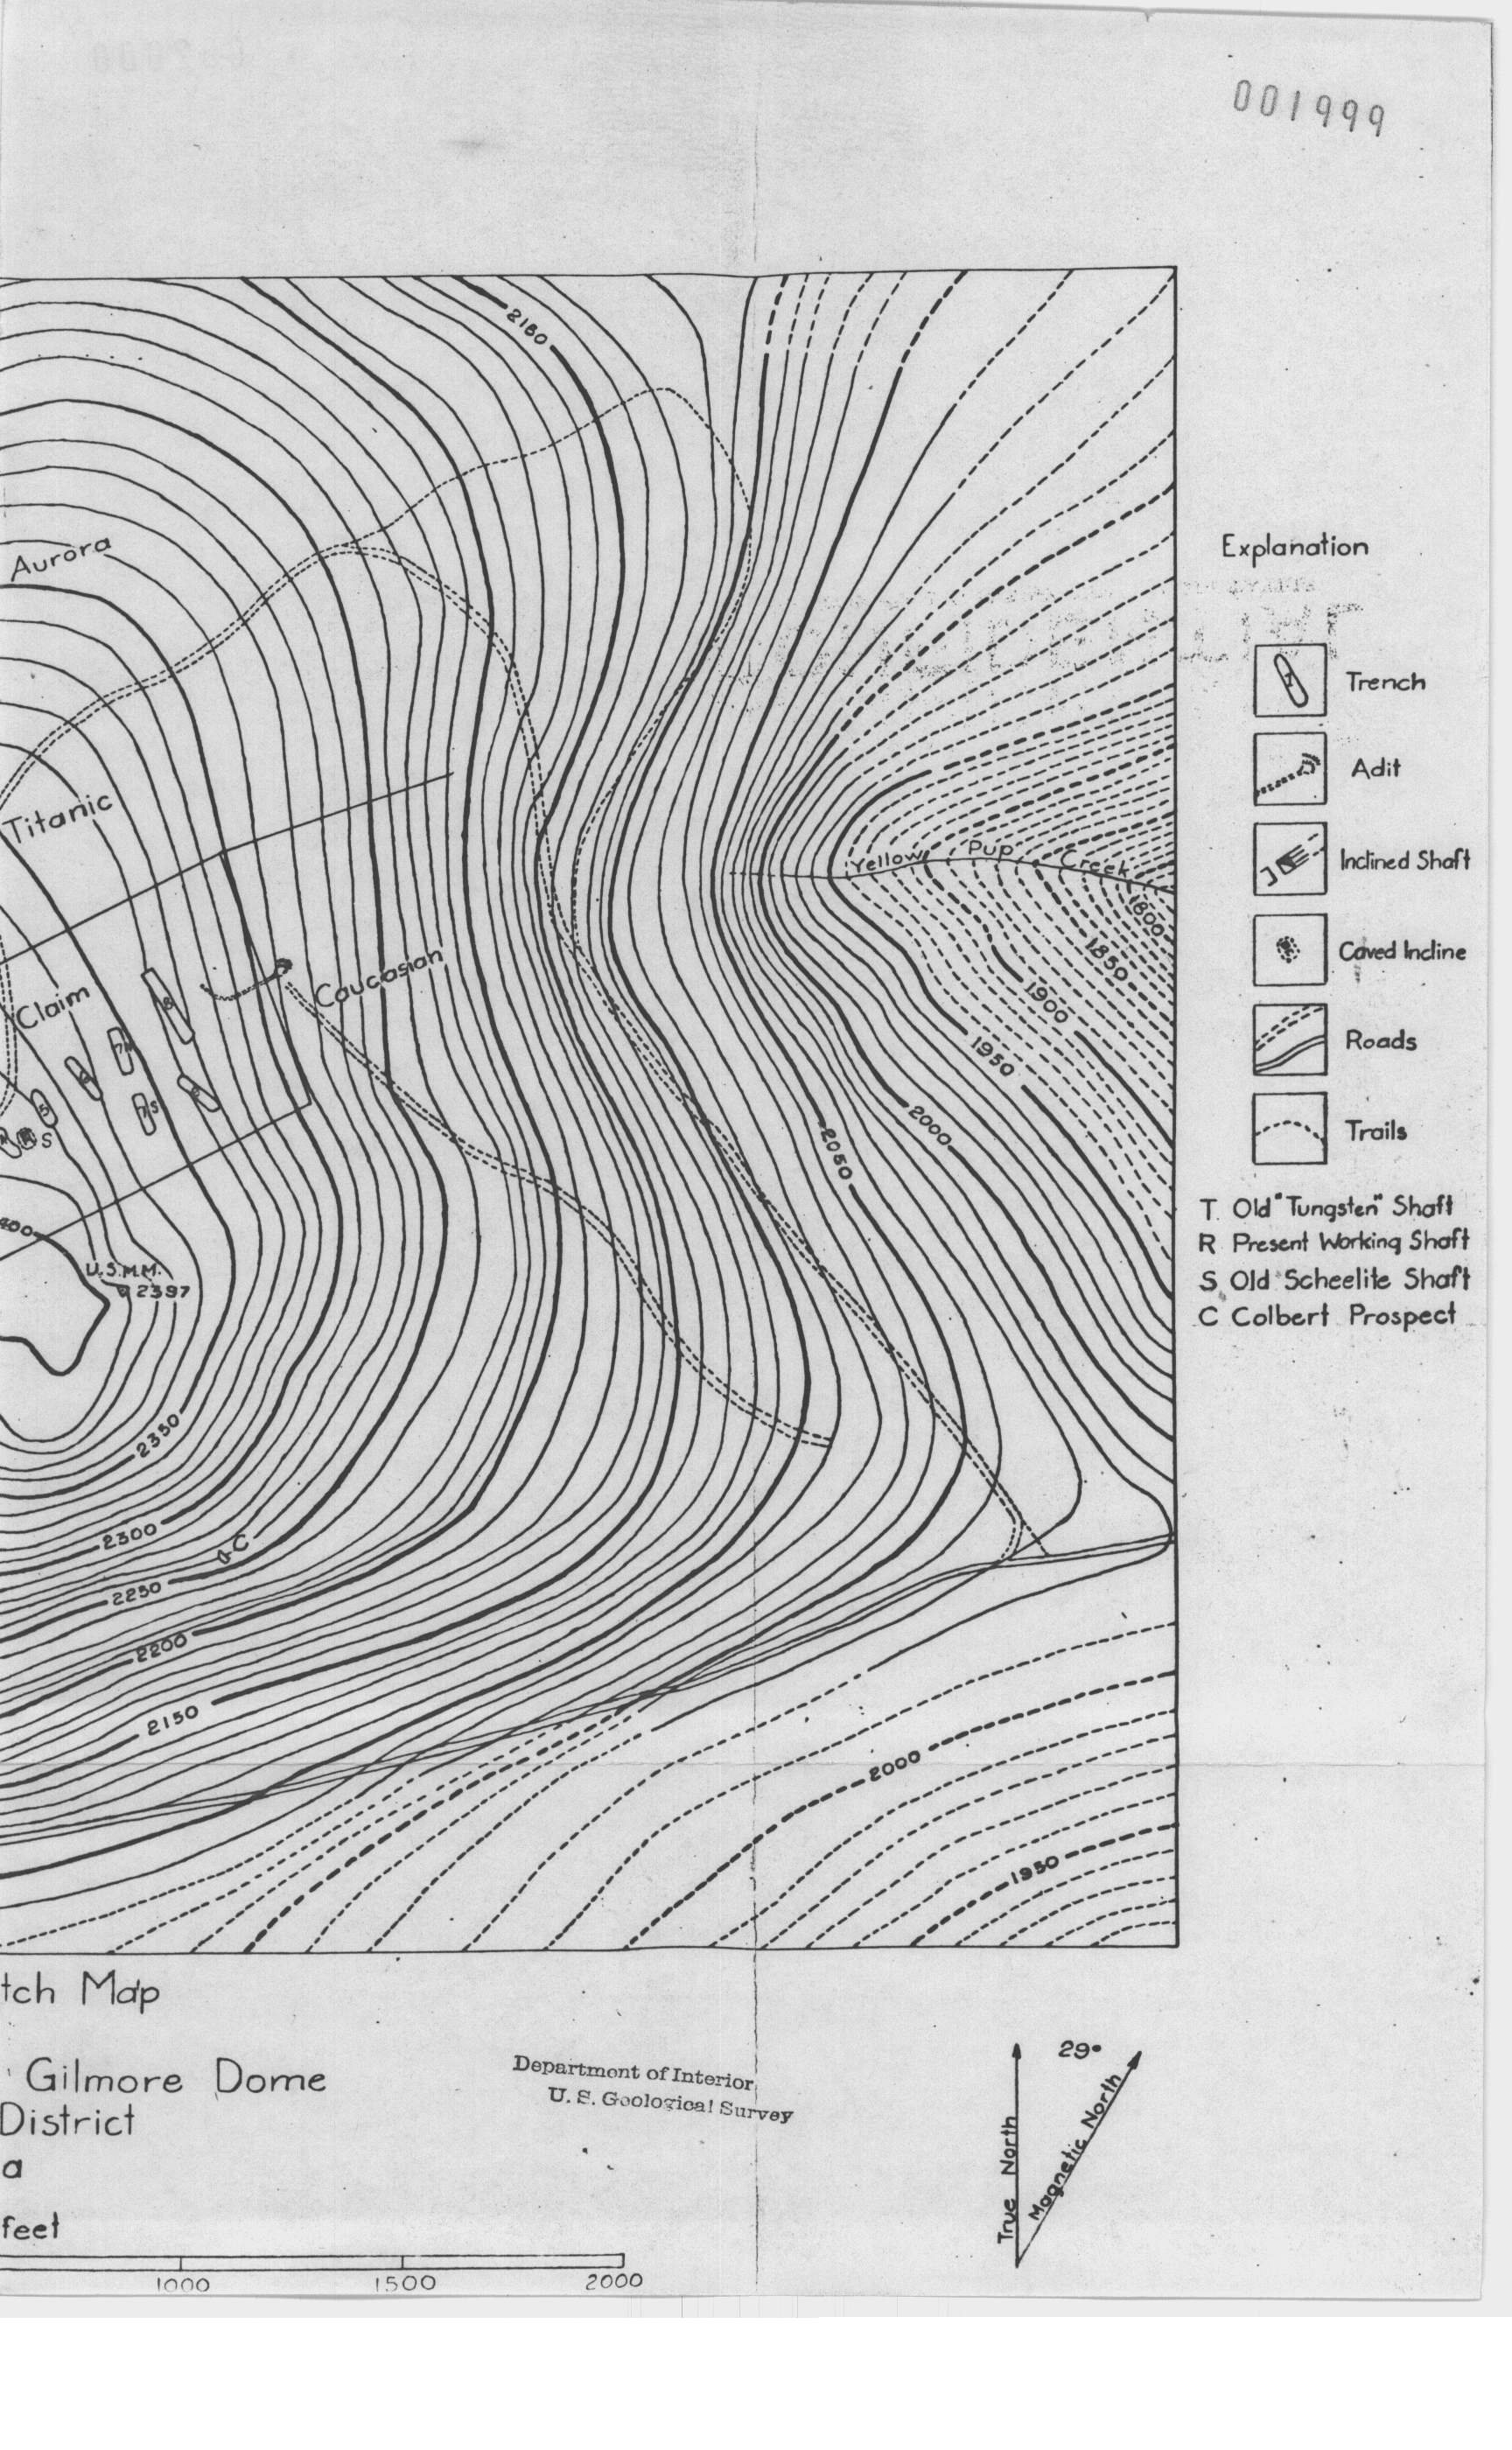 001999
2150
Aurora
Explanation
Trench
Titanic
Adit
Yellow Pup Creek
Inclined Shaft
1800
Caucasian
1850
Caved Incline
Claim
8
1900
7N
Roads
1950
6
5
9
7S
2000
Trails
R S
2050
T Old "Tungsten" Shaft
R Present Working Shaft
S Old Scheelite Shaft
C Colbert Prospect
400
U.S.M.M.
2397
2350
2300
C
2250
2200
2150
2000
1950
tch Map
Gilmore Dome
District
a
feet
1000 1500 2000
Department of Interior
U. S. Geological Survey
29°
True North
Magnetic North